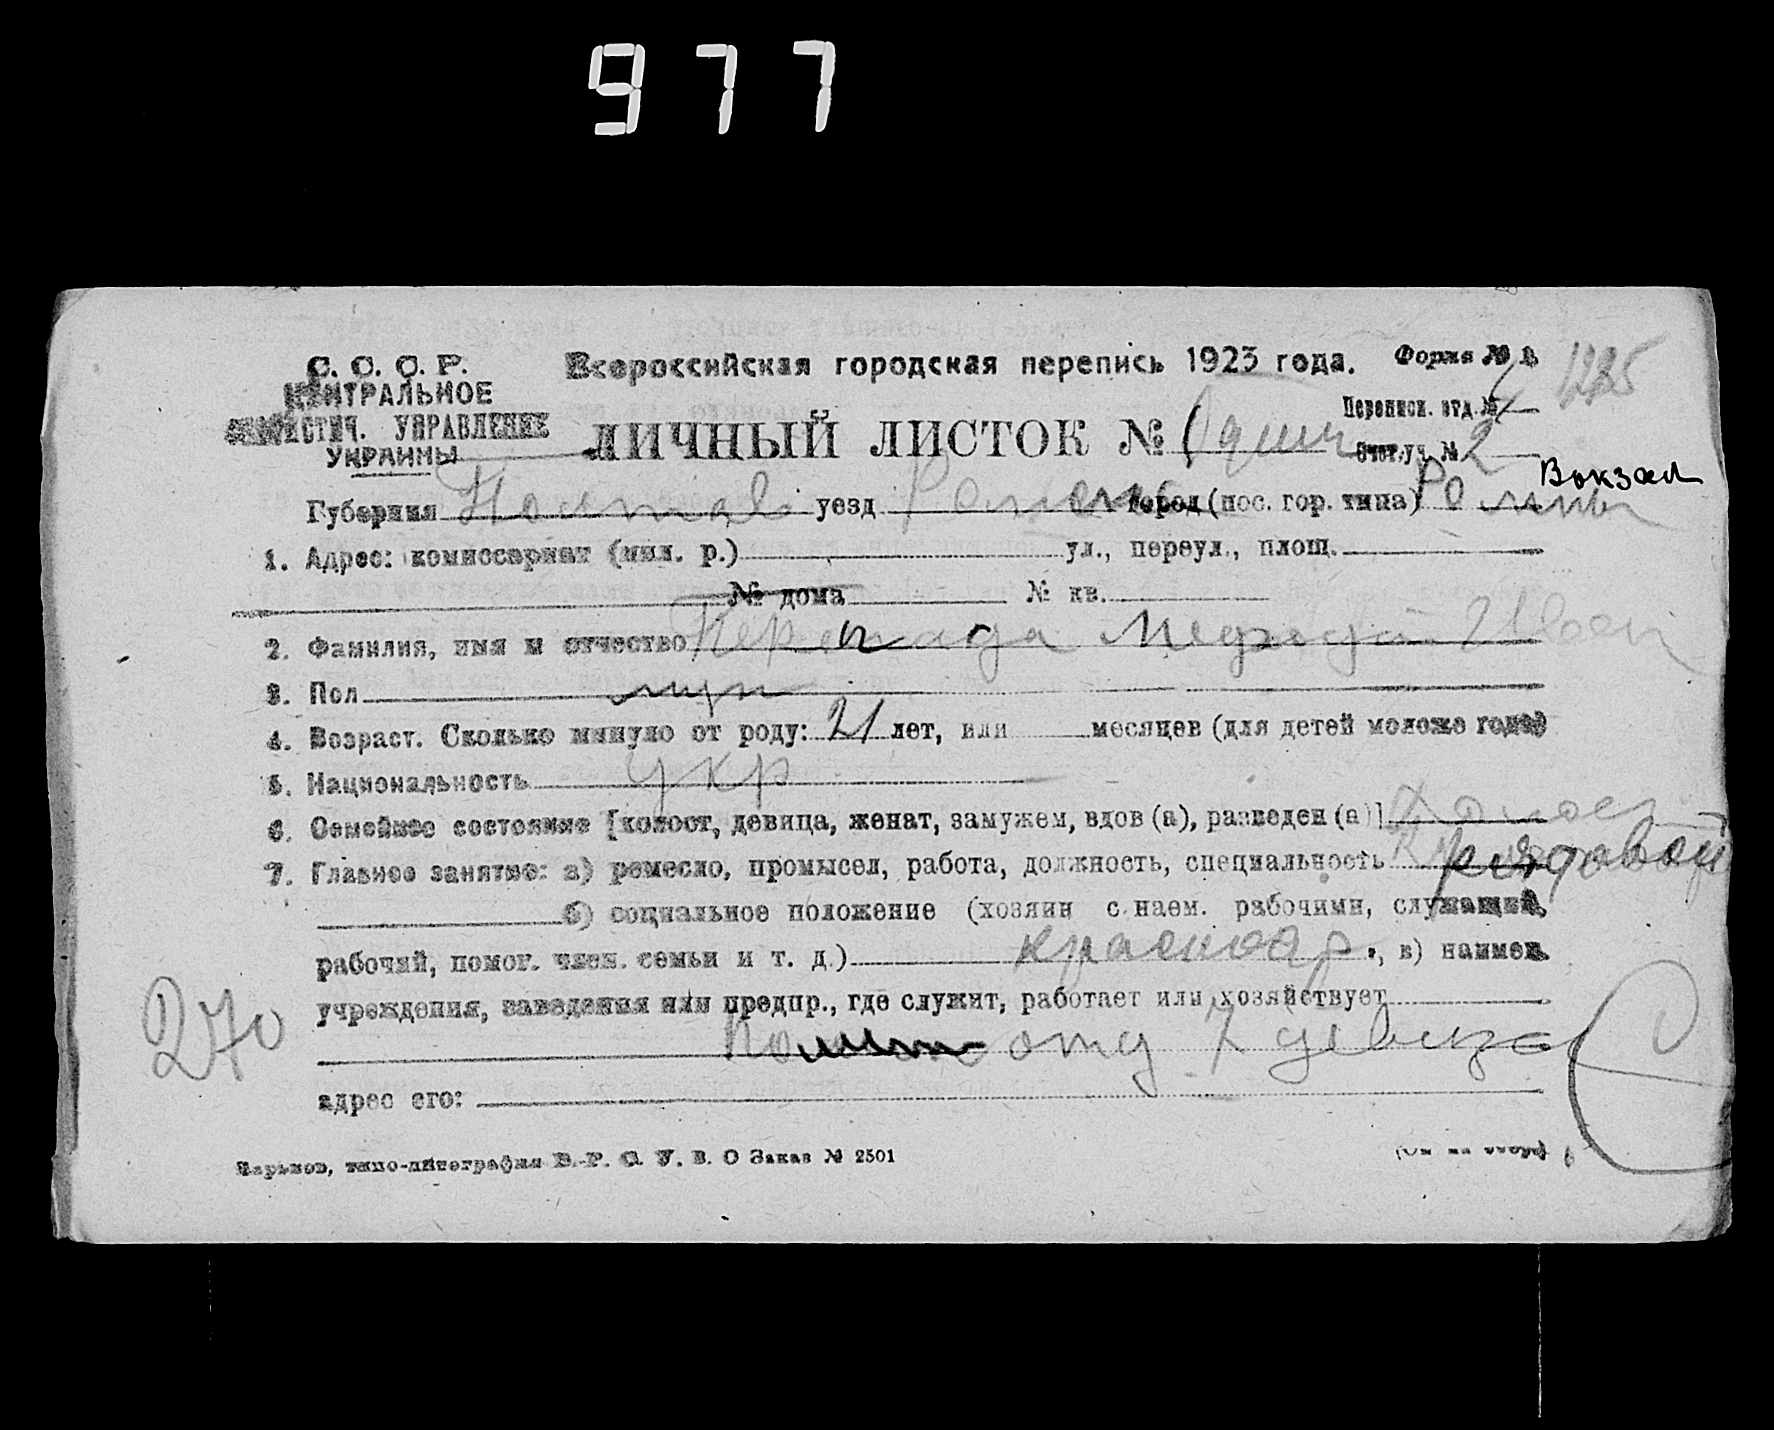 977
С. С. С. Р.
ЦЕНТРАЛЬНОЕ
СТАТИСТИЧ. УПРАВЛЕНИЕ
УКРАИНЫ
Всероссийская городская перепись 1923 года.
Форма № 1.
1225
ЛИЧНЫЙ ЛИСТОК №
Переписн. отд. №
Счет. уч. № 2
Вокзал
Губерния уезд город (пос. гор. типа) Ромны
1. Адрес: комиссариат (мил. р.) ул., переул., площ.
№ дома № кв.
2. Фамилия, имя и отчество
3. Пол муж
4. Возраст. Сколько минуло от роду: 21 лет, или месяцев (для детей моложе года)
5. Национальность укр
6. Семейное состояние [холост, девица, женат, замужем, вдов (а), разведен (а)] Холост
7. Главное занятие: а) ремесло, промысел, работа, должность, специальность рядовой
б) социальное положение (хозяин с наем. рабочими, служащий,
рабочий, помог. член. семьи и т. д.) красноар., в) наимен.
учреждения, заведения или предпр., где служит, работает или хозяйствует
отд 7 дивиз
270
адрес его:
Харьков, типо-литография В.-Р. С. У. В. О Заказ № 2501